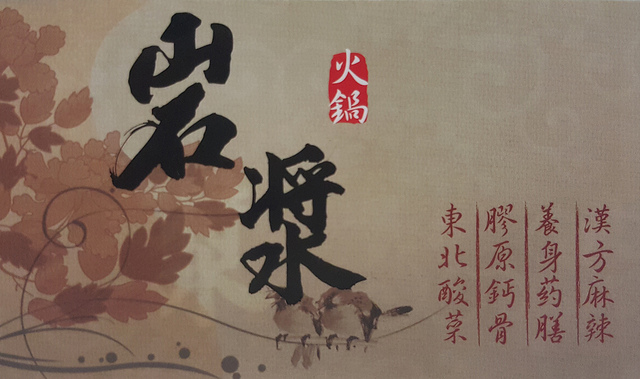 岩漿
火鍋
漢方麻辣
養身药膳
膠原鈣骨
東北酸菜